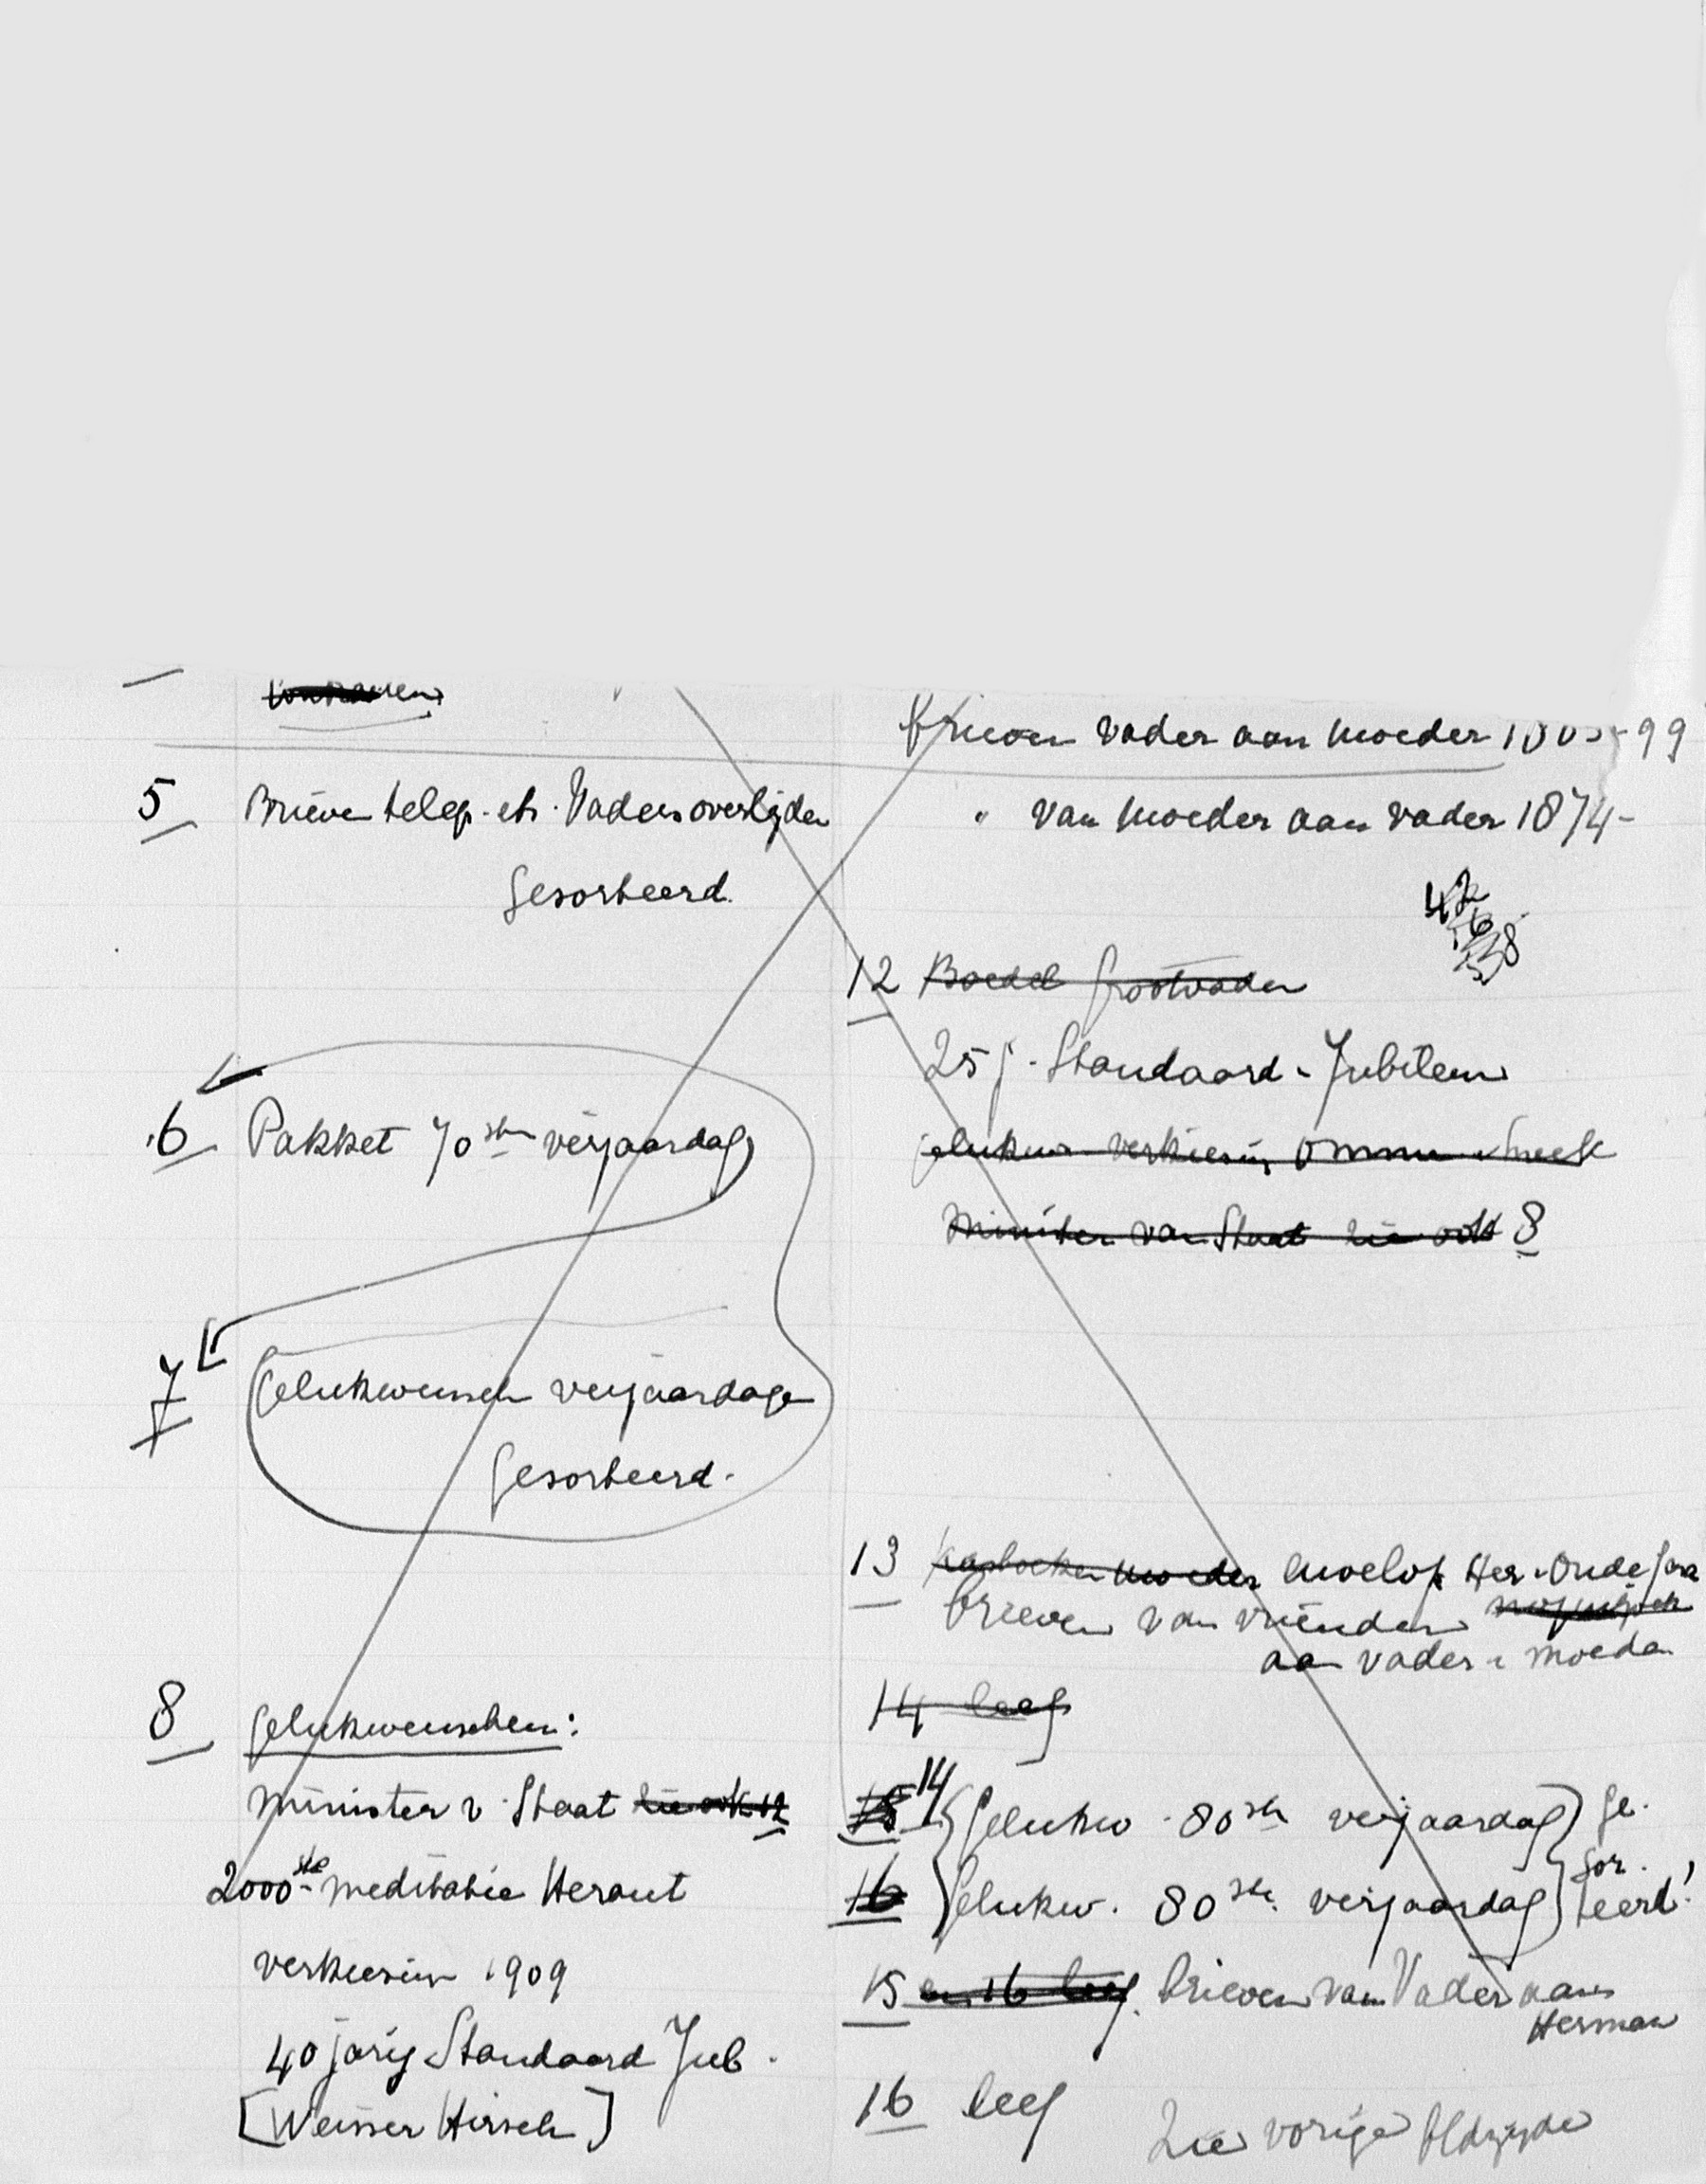 5 Brieven teleg. etc. Vaders overlijden
gesorteerd.
6 Pakket 70ste verjaardag
7 Gelukwensch verjaardage
gesorteerd.
8 gelukwenschen:
Minister v. Staat zie ook 12
2000ste meditatie Heraut
verkiezin 1909
40 jarig Standaard Jub.
[Weisser Hirsch]
brieven vader aan moeder 99
" van moeder aan vader 1874-
12 Boedel Grootvader
25 j. Standaard-Jubileum
gelukw. verkiezing Ommen
Minister van Staat zie ook 8
13 Kasboeken moeder envelop Her. Oude
brieven van vrienden
aan vader & moeder
14 leeg
15 14 Gelukw. 80ste verjaardag } ge-
sor-
16 Gelukw. 80ste verjaardag } teerd!
15 en 16 leeg. brieven van Vader aan
Herman
16 leeg
Zie vorige bldzijde